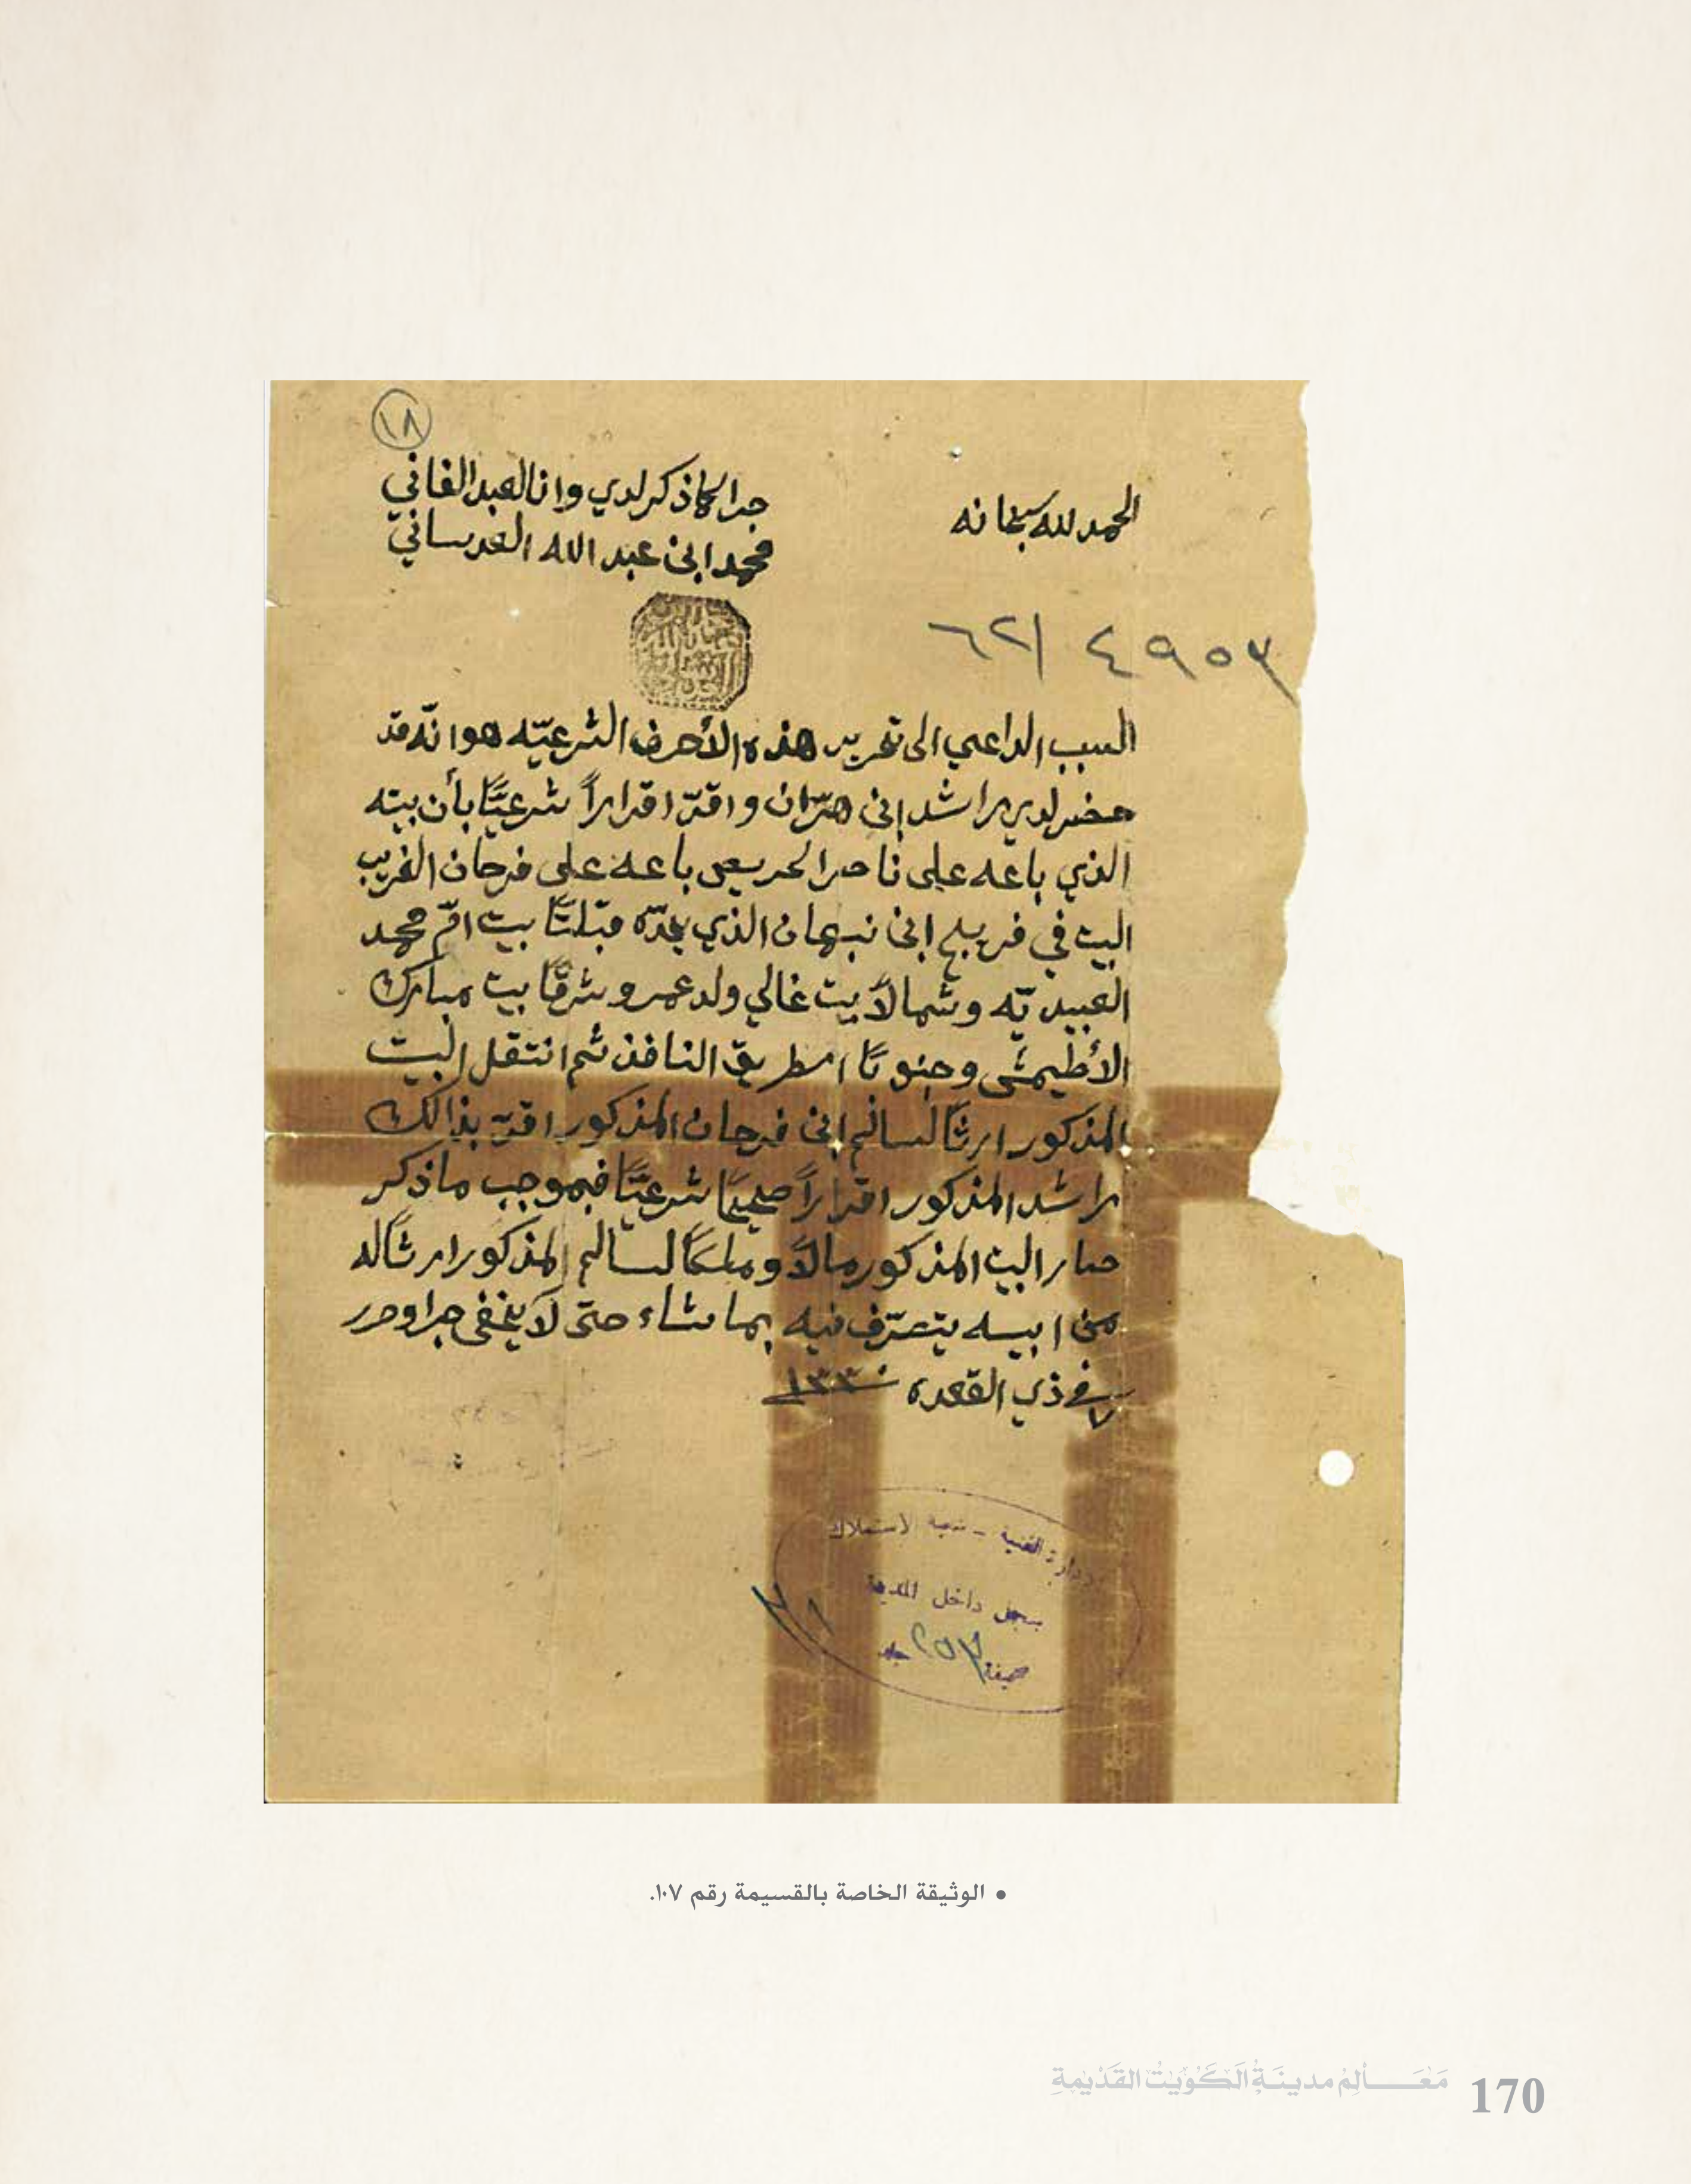 ١٨
الحمد لله سبحانه
جرا كما ذكر لدي وانا العبد الفاني
محمد ابن عبد الله العدساني
٤٩٥٣ /٦٢
السبب الداعي الى تحرير هذه الأحرف الشرعيّه هو انّه قد
حضر لدي راشد ابن هزّان واقرّ اقراراً شرعيّاً بأن بيته
الذي باعه على ناصر الحريص باعه على فرحان الغريب
البيت في فريج ابن نبهان الذي يحدّه قبلتاً بيت امّ محمد
العبيديّه وشمالاً بيت غالي ولد عمر وشرقاً بيت مبارك
الأطيمشي وجنوباً الطريق النافذ ثم انتقل البيت
المذكور ارثاً لسالم ابن فرحان المذكور اقرّ بذالك
راشد المذكور اقراراً صحيحاً شرعيّاً فبموجب ما ذكر
صار البيت المذكور مالاً وملكاً لسالم المذكور ارثاً له
من ابيه يتصرّف فيه بما شاء حتى لا يخفى جرا وحرر
في ٧ ذي القعده سنة ١٣٣٠
الادارة الفنية - شعبة الاستملاك
سجل داخل المدينة
صحيفة ٢٥٣ جلد
• الوثيقة الخاصة بالقسيمة رقم ١٠٧.
مَعَـــالِمُ مدينَةِ الكُوَيْتِ القَدْيمةِ 170